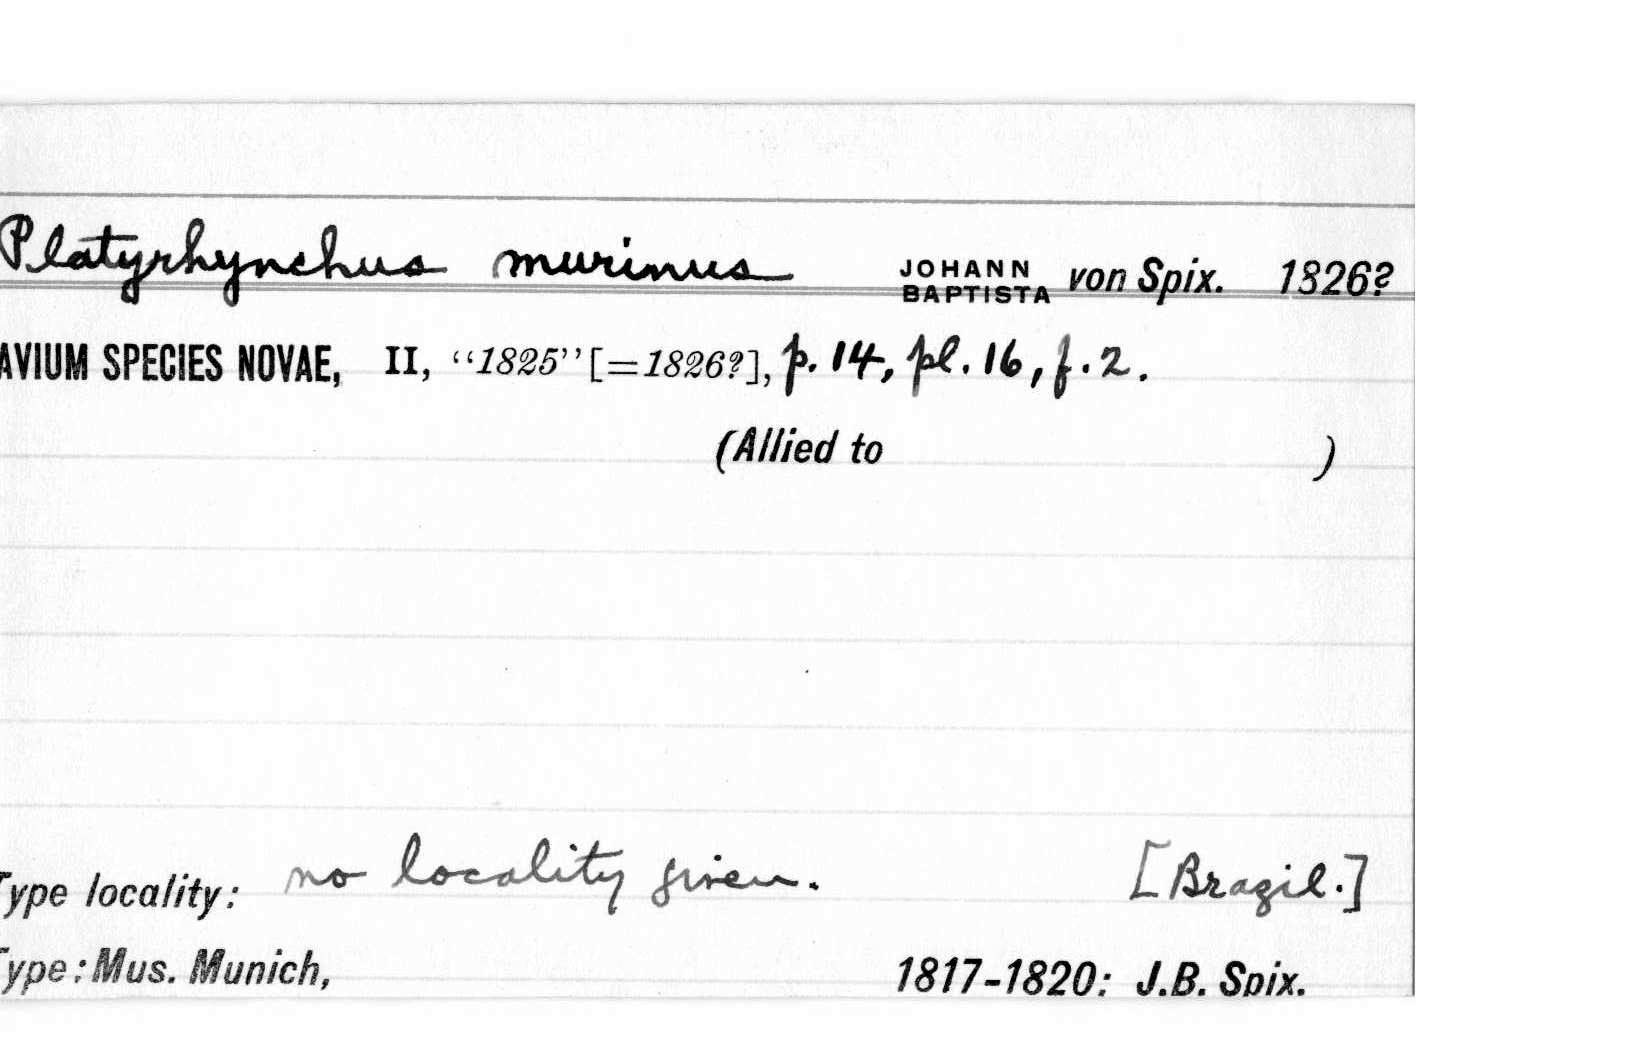 Platyrhynchus murinus JOHANN BAPTISTA von Spix. 1826?
AVIUM SPECIES NOVAE, II, “1825” [=1826?], p. 14, pl. 16, f. 2.
(Allied to )
Type locality: no locality given. [Brazil.]
Type: Mus. Munich, 1817-1820: J.B. Spix.